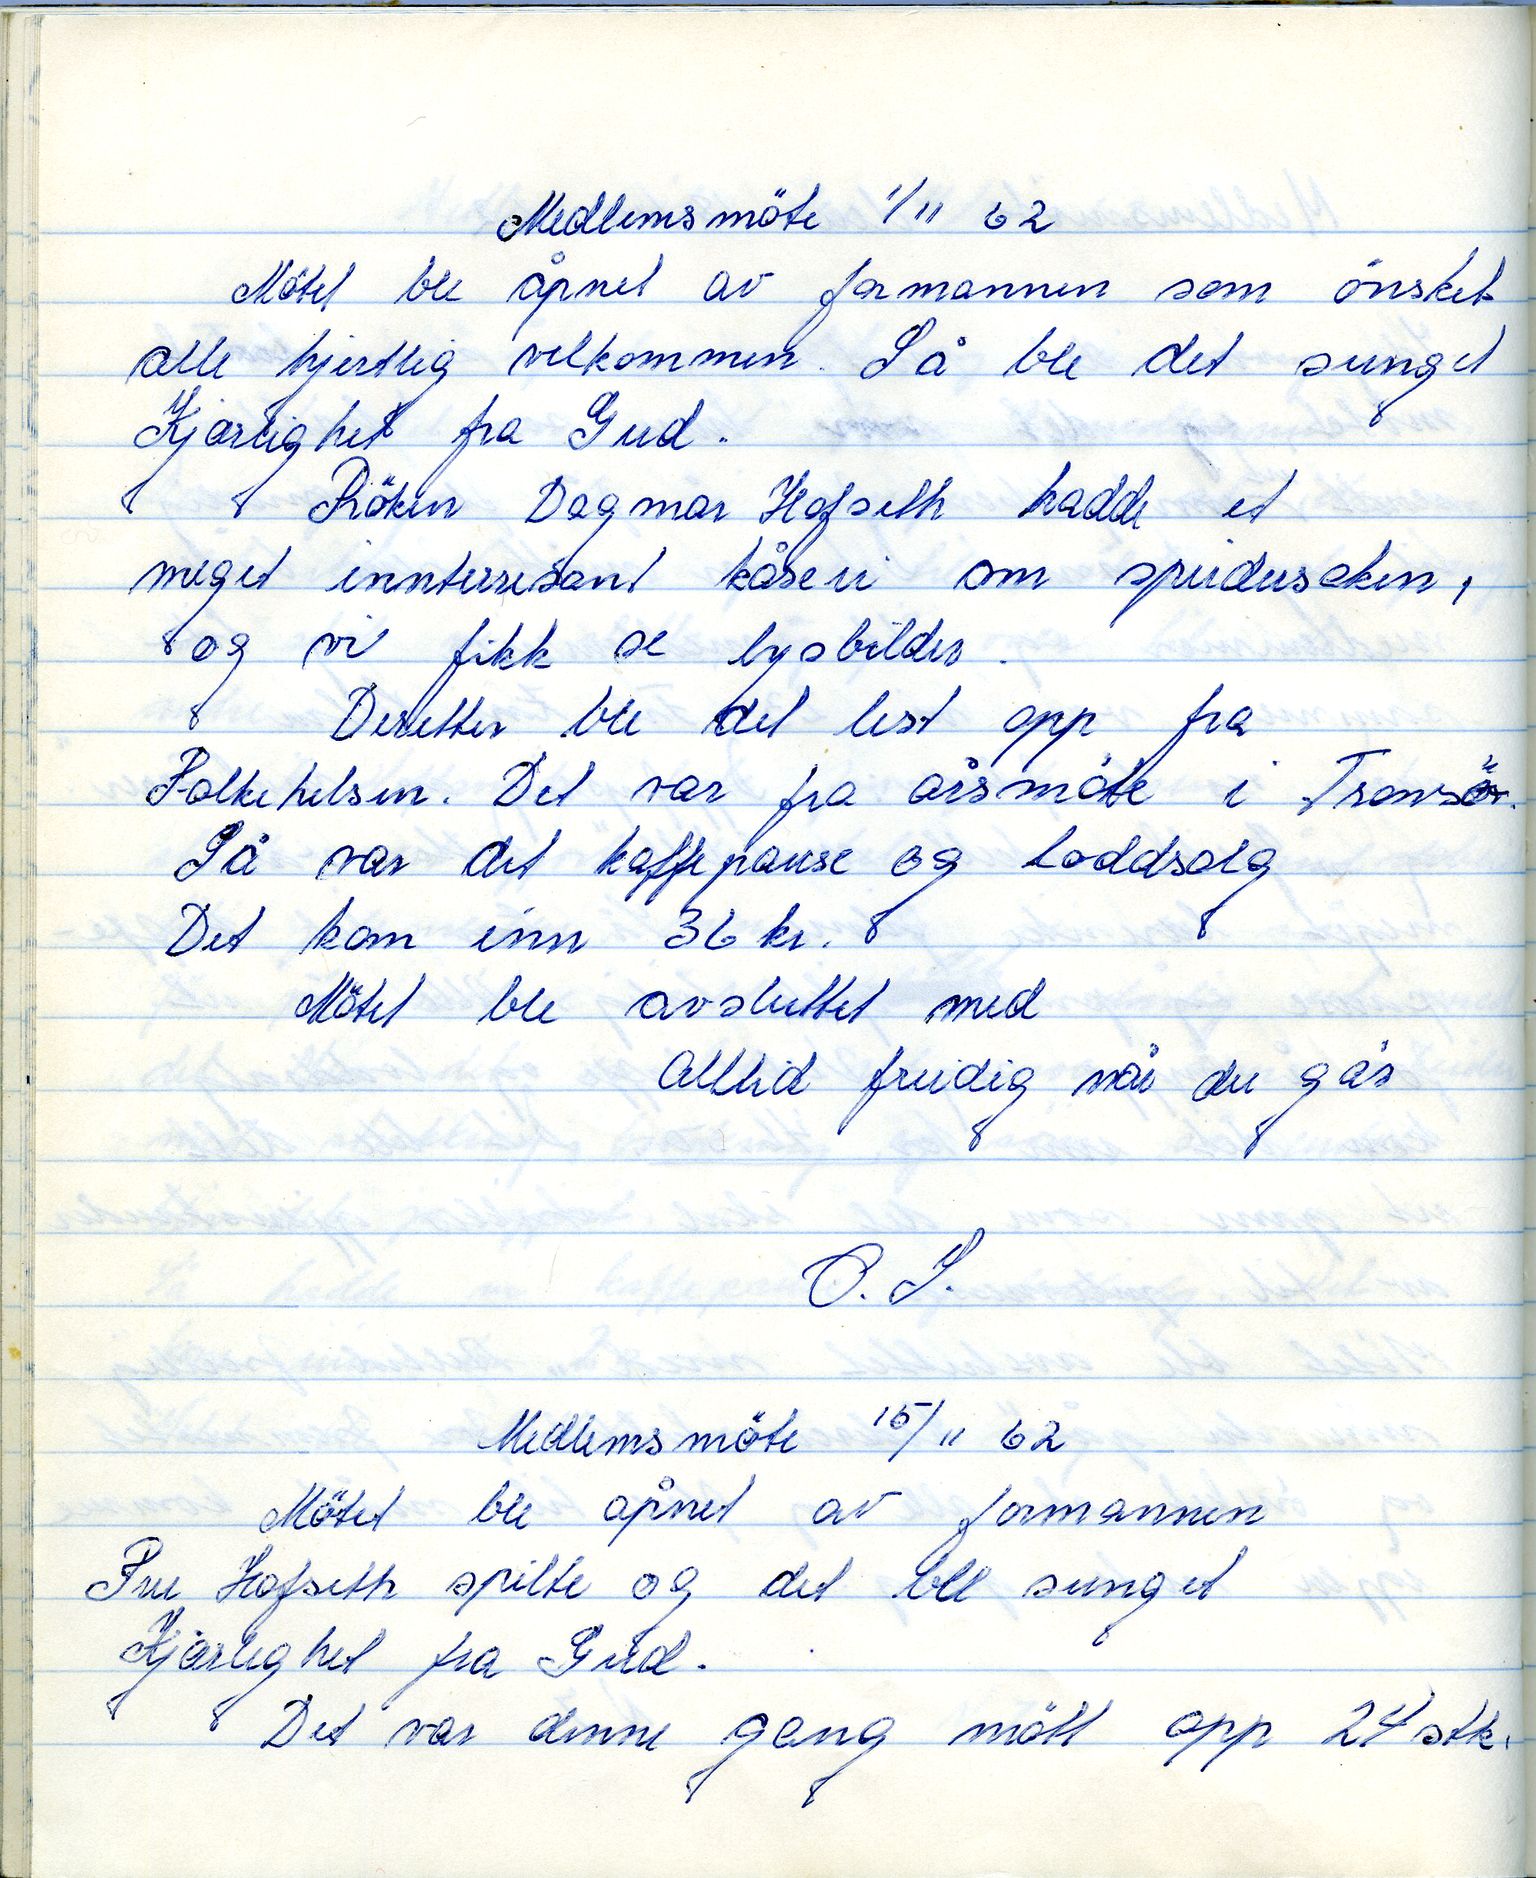 Medlemsmöte 1/11 62
Mötet ble åpnet av formannen som önsket
alle hjertlig velkommen. Så ble det sunget
Kjærlighet fra Gud.
Fröken Dagmar Hofseth hadde et
meget innterresant kåseri om speidersaken,
og vi fikk se lysbilder.
Deretter ble det lest opp fra
Folkehelsen. Det var fra årsmöte i
Så var det kaffepause og loddsalg
Det kom inn 36 kr.
Mötet ble avsluttet med
Alltid freidig når du går
O. S.
Medlemsmöte 15/11 62
Mötet ble åpnet av formannen
Fru Hofseth spilte og det ble sunget
Kjærlighet fra Gud.
Det var denne gang mött opp 24 stk.